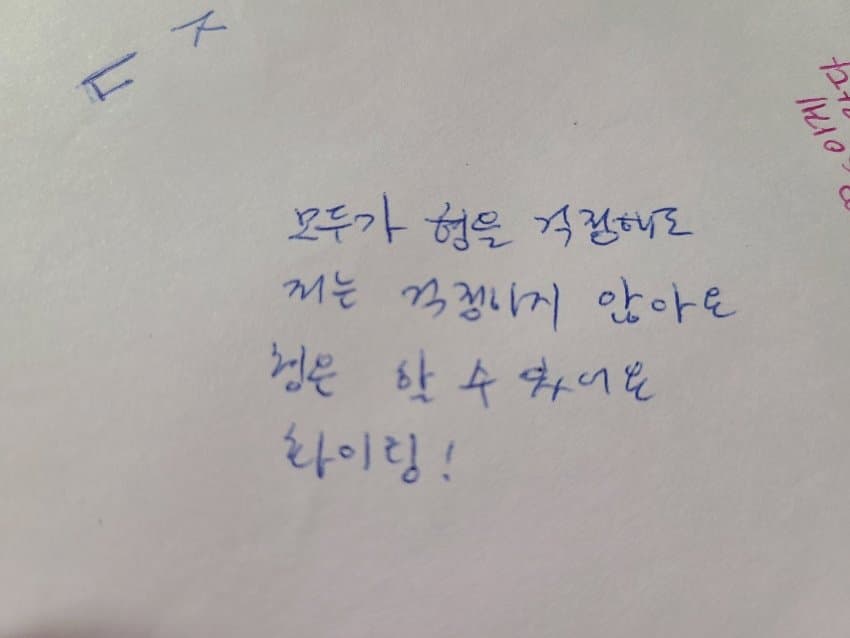 모두가 형을 걱정해도
저는 걱정하지 않아요
형은 할 수 있어요
화이링!
이제